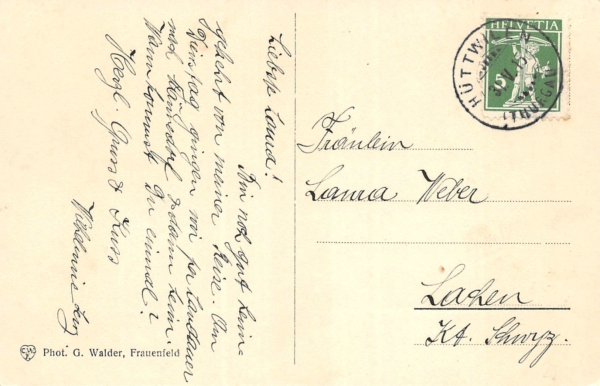 Liebste Laura!
Bin noch gut heim-
gekehrt von meiner Reise. Am
Dienstag gingen wir per Landauer
nach
Wann kommst Du einmal?
Herzl. Gruss & Kuss
Wilhelmine
HELVETIA
5
HÜTTWILEN
(THURGAU)
Fräulein
Laura Weber
Lachen
Kt. Schwyz.
Phot. G. Walder, Frauenfeld